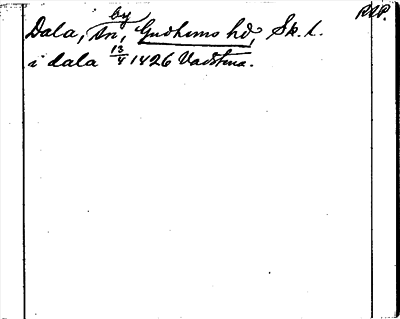 RAP.
by
Dala, sn, Gudhems hd, Sk. l.
i dala 13/4 1426 Vadstena.